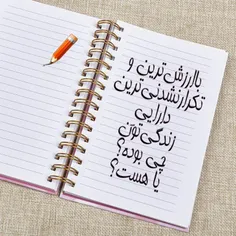 باارزش‌ترین و
تکرارنشدنی‌ترین
دارایی
زندگی‌تون
چی بوده؟
یا هست؟